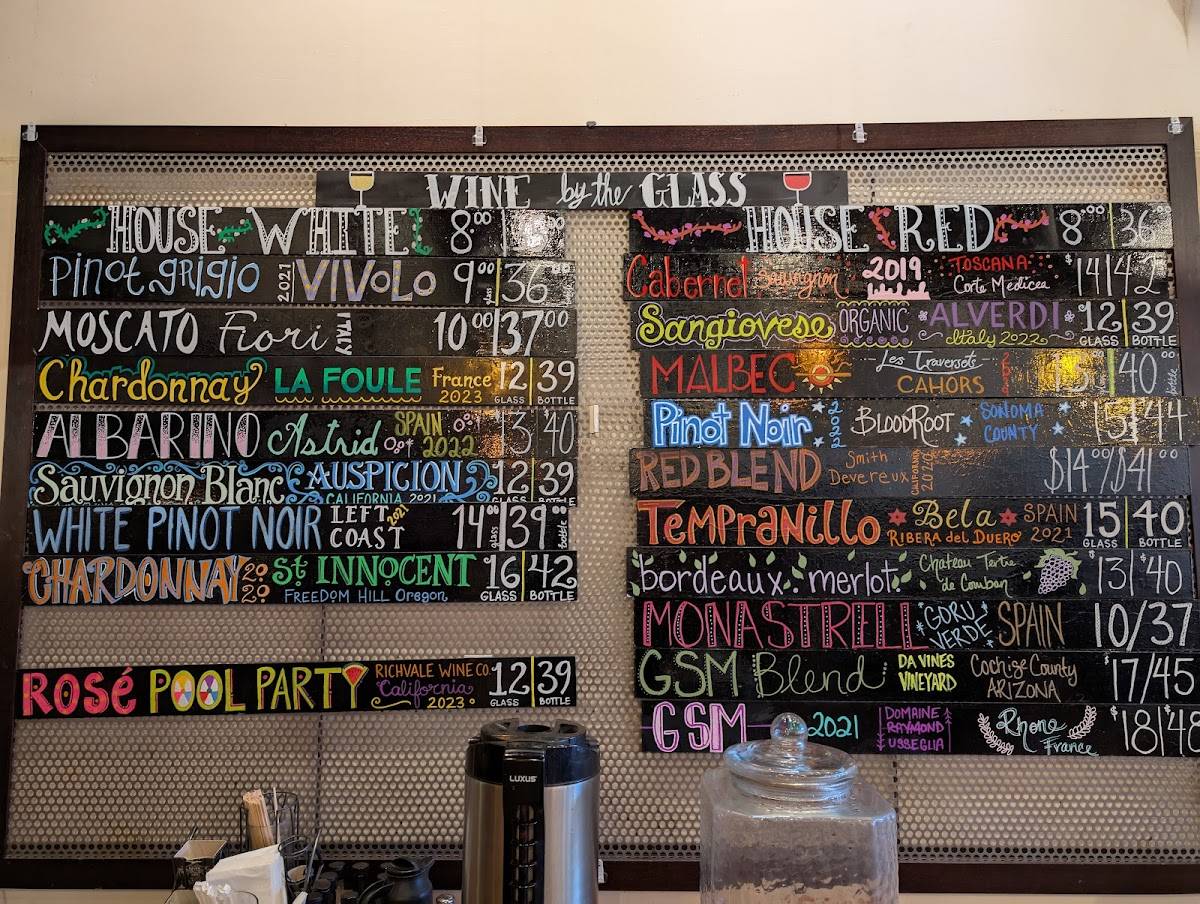 WINE by the GLASS
HOUSE WHITE 8.00
Pinot grigio 2021 VIVOLO 9.00 glass 36.00
MOSCATO Fiori ITALY 10.00 37.00
Chardonnay LA FOULE France 2023 12 GLASS 39 BOTTLE
ALBARINO Astrid SPAIN 2022 13 40
Sauvignon Blanc AUSPICION CALIFORNIA 2021 12 GLASS 39 BOTTLE
WHITE PINOT NOIR LEFT COAST 2021 14.00 glass 39.00 bottle
CHARDONNAY 2020 St INNOCENT FREEDOM HILL Oregon 16 GLASS 42 BOTTLE
Rosé POOL PARTY RICHVALE WINE CO. California 2023 12 GLASS 39 BOTTLE
HOUSE RED 8.00 36
Cabernet Sauvignon 2019 TOSCANA Corte Medicea $14 42
Sangiovese ORGANIC ALVERDI Italy 2022 12 GLASS 39 BOTTLE
MALBEC Les Traversets CAHORS 15 40 bottle
Pinot Noir 2021 BLOODROOT SONOMA COUNTY 15 44
RED BLEND Smith Devereux CALIFORNIA 2020 $14.00/$41.00
TEMPRANILLO Bela RIBERA del DUERO SPAIN 2021 15 GLASS 40 BOTTLE
bordeaux merlot Chateau Tertre de 13 $40
MONASTRELL GORU VERDE SPAIN 10/37
GSM Blend DA VINES VINEYARD Cochise County ARIZONA $17/45
GSM 2021 DOMAINE RAYMOND USSEGLIA Rhone France $18 $48
LUXUS